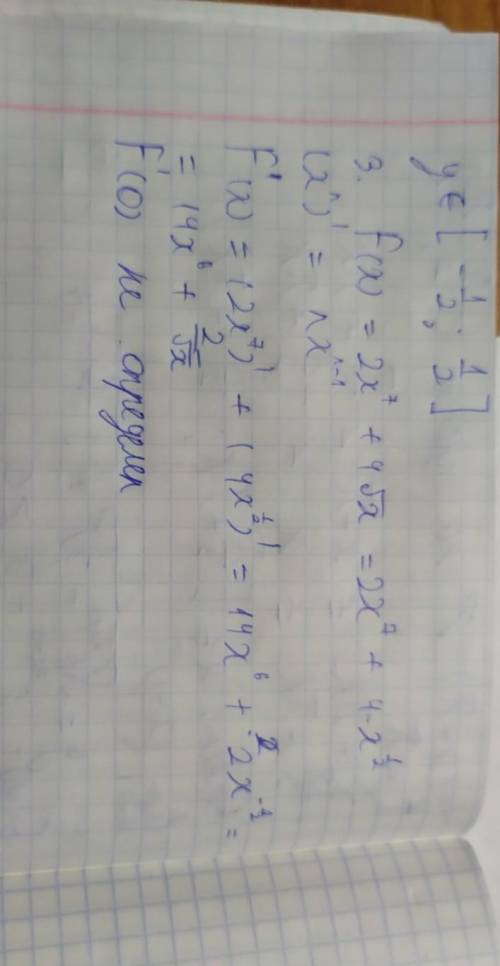 y ∈ [-1/2; 1/2]
3. f(x) = 2x⁷ + 4√x = 2x⁷ + 4·x^(1/2)
(xⁿ)' = nxⁿ⁻¹
f'(x) = (2x⁷)' + (4x^(1/2))' = 14x⁶ + 2x^(-1/2) =
= 14x⁶ + 2/√x
f'(0) не определен